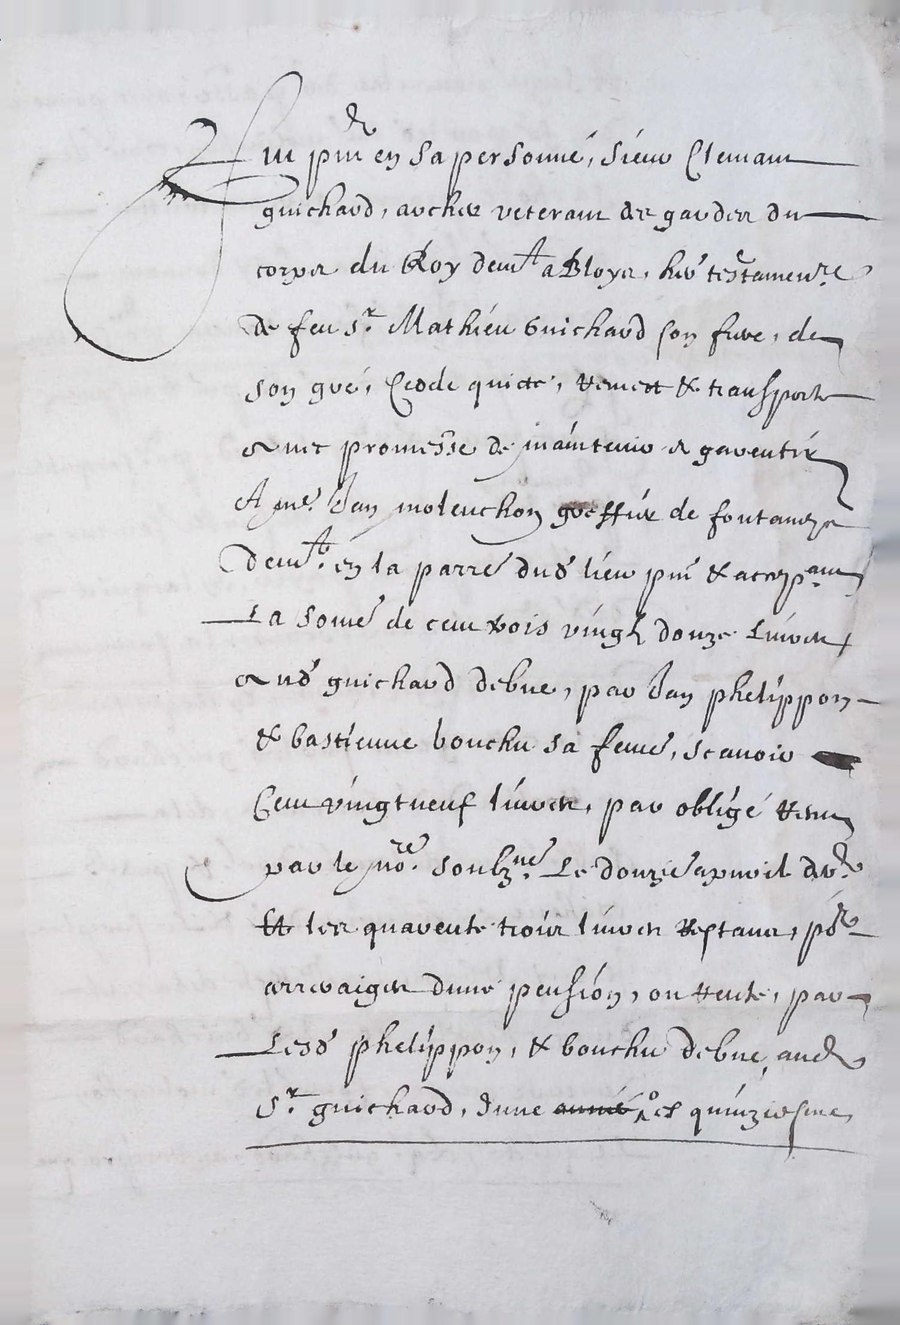 Fut pnt en sa personne, sieur Clemant
guichard, archer veterant des gardes du
corps du Roy demt a Bloys, her testamenre
de feu sr Mathieu Guichard son frere, de
son gré, Cedde quicte, remect & transporte
avec promesse de maintenir & garentir
A me Jan molenchon greffier de fontaines
demt en la parre dud lieu pnt & acceptant
La some de cent trois vingtz douze Livres
aud guichard debue, par Jan phelippon
& bastienne bouchu sa feme, scavoir
Cent vingt neuf livres, par obligé receu
par le nore soubzné Le douzie apvril der
Et les quarente trois livres restans, por
arreraiges dune pension, ou rente, par
Lesd phelippon, & bouchu debue, aud
sr guichard, dune année, es quinziesme